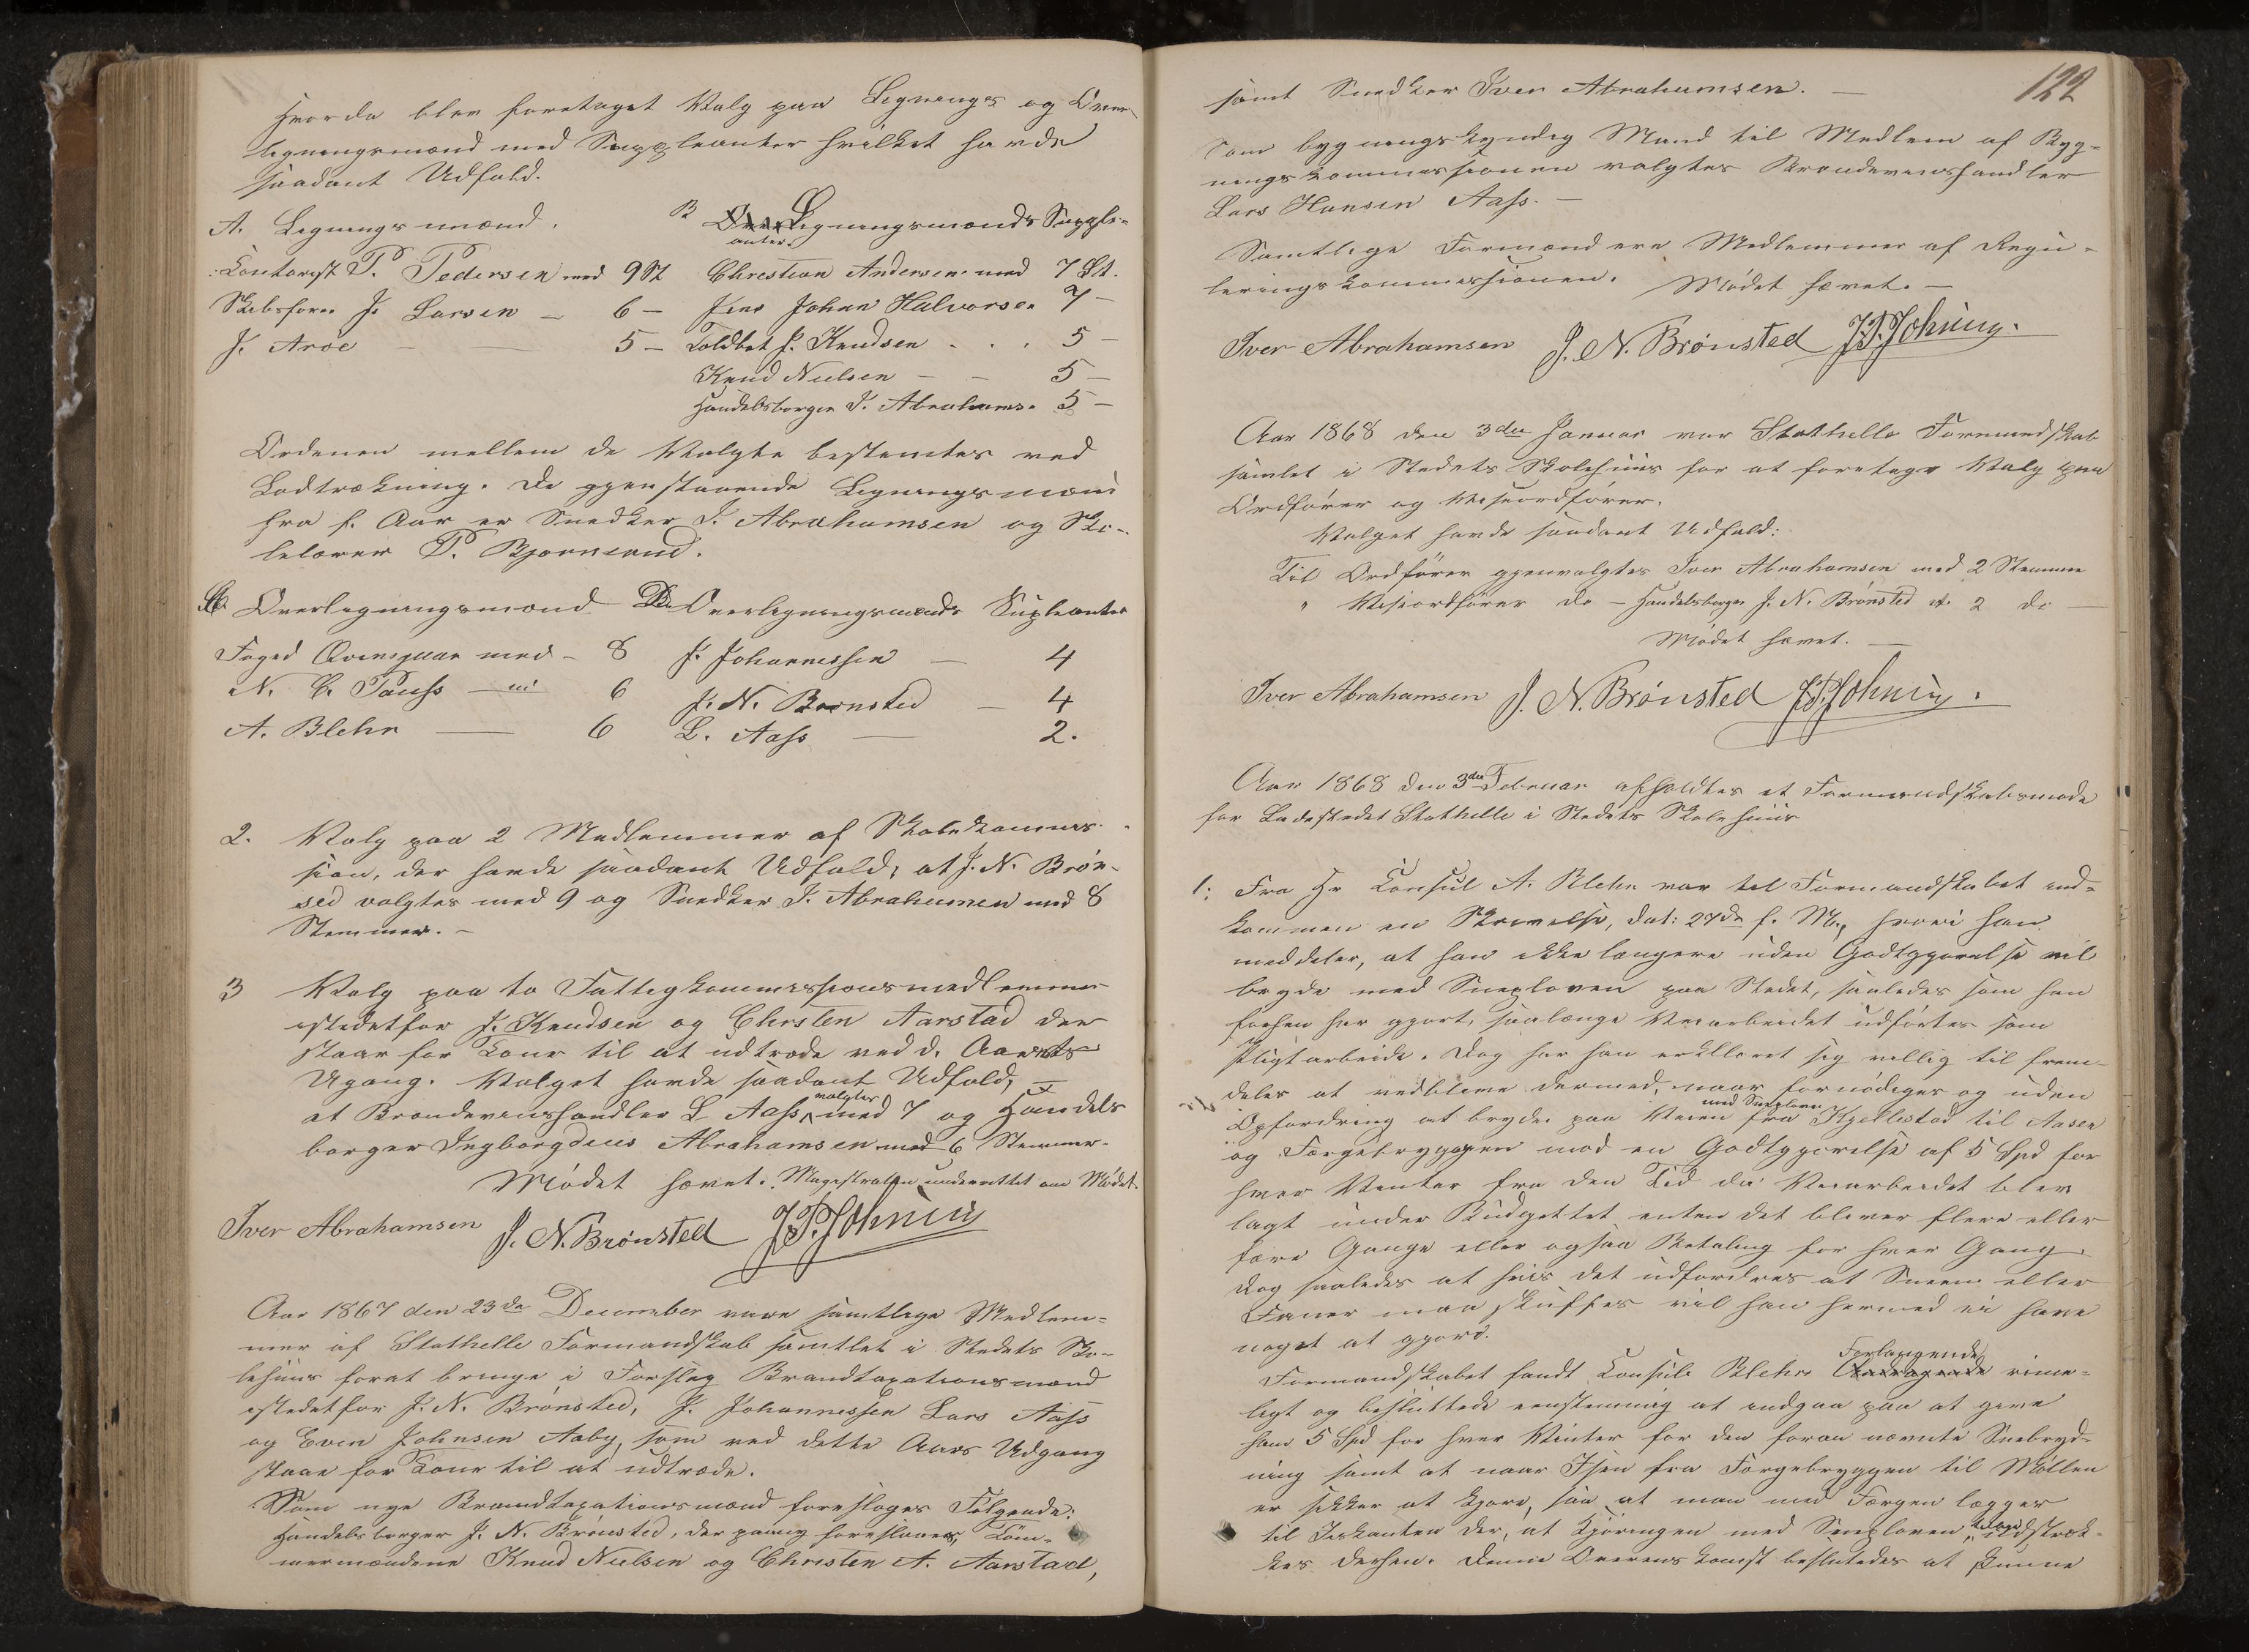 hvorda blev foretaget Valg paa Legnings og Over-
ligningsmænd med Suppleanter hvilket havde
saadant Udfald.
A. Legningsmænd.
Kontorist P. Pedersen med 9 St
Skibsfører J. Larsen – 6 –
J. Aroe – 5 –
B Legningsmænds Supple-
anter.
Christian Andersen med 7 St.
Jens Johan Halvorsen 7 –
Toldbet. J. Knudsen . . . 5 –
Knud Nielsen – – 5 –
Handelsborger I. Abrahams. 5 –
Ordenen mellem de Valgte bestemtes ved
Lodtrækning. De gjenstaaende Legningsmænd
fra f. Aar er Snedker I. Abrahamsen og Sko-
lelærer P. Bjørnsund.
C. Overlegningsmænd
Foged Qvensjuan med – 8
N. C. Pauss – 6
A. Blehr — 6
D. Overlegningsmænds Supleanter
J. Johannessen — 4
J. N. Brønsted – 4
L. Aass — 2.
2. Valg paa 2 Medlemmer af Skolekommis-
sion, der havde saadant Udfald, at J. N. Brøn-
sed valgtes med 9 og Snedker I. Abrahamsen med 8
Stemmer. –
3 Valg paa to Fattigkommissionsmedlemmer
istedetfor J. Knudsen og Chrsten Aarstad der
staar for Tour til at udtræde ved d. Aarets
Ugang. Valget havde saadant Udfald,
at Brændevinshandler L Aass valgtes med 7 og Handels
borger Ingborgdius Abrahamsen med 6 Stemmer.
Mødet hævet. Magistraten underrettet om Mødet.
Iver Abrahamsen J. N. Brønsted J.P. Johnsen
Aar 1867 den 23de December vare samtlige Medlem-
mer af Stathelle Formandskab samtlet i Stedets Sko-
lehuus forat bringe i Forslag Brandtaxationsmænd
istedetfor J. N. Brønsted, J. Johannessen Lars Aass
og Even Johnsen Aaby, som ved dette Aars Udgang
staar for Tour til at udtræde.
Som nye Brandtaxationsmænd foresloges Følgende:
Handelsborger J. N. Brønsted, der paany foreslaaes, Tøm-
mermændene Knud Nielsen og Christen A. Aarstad,
122
samt Snedker Iver Abrahamsen. —
Som bygningskyndig Mand til Medlem af Byg-
ningskommissionen valgtes Brændevinshandler
Lars Hansen Aass. –
Samtlige Formænd ere Medlemmer af Regu-
leringskommissionen. Mødet hævet. –
Iver Abrahamsen J. N. Brønsted J.P. Johnsen.
Aar 1868 den 3die Januar var Stathelle Formandskab
samlet i Stedets Skolehuus for at foretage Valg paa
Ordfører og Viseordfører.
Valget havde saadant Udfald:
Til Ordfører gjenvalgtes Iver Abrahamsen med 2 Stemmer
" Viseordfører do – Handelsborger J. N. Brønsted 2 do —
Mødet hævet. —
Iver Abrahamsen J. N. Brønsted J.P. Johnsen.
Aar 1868 den 3die Februar afholdtes et Formandskabsmøde
for Ladestedet Stathelle i Stedets Skolehuus
1: Fra Hr Konsul A. Blehr var til Formandskabet ind-
kommen en Skrivelse, dat: 27de f. M., hvori han
meddeler, at han ikke længere uden Godtgjørelse vil
bryde med Sneploven paa Stedet, saaledes som han
forhen har gjort, saalænge Veiarbeidet udførtes som
Pligtarbeide. Dog har han erklæret sig villig til frem-
deles at vedblive dermed, naar fornødiges og uden
Opfordring at bryde paa Veien med Sneploven fra Kjellestad til Aasen
og Færgebryggen mod en Godtgjørelse af 5 Spd for
hver Vinter fra den Tid da Veiarbeidet blev
lagt under Budgettet enten det bliver flere eller
færre Gange eller ogsaa Betaling for hver Gang.
Dog saaledes at hvis det udfordres at Sneen eller
Faner maa skuffes vil han hermed ei have
noget at gjøre.
Formandskabet fandt Consul Blehrs Forlangende rime-
ligt og besluttede eenstemmig at indgaa paa at give
ham 5 Spd for hver Vinter for den foran nævnte Snebryd-
ning samt at naar Isen fra Færgebryggen til Møllen
er sikker at kjøre, saa at man med Færgen lægger
til Iskanten der, at Kjøringen med Sneploven udstræk-
kes derhen. Denne Overenskomst besluttedes at kunne